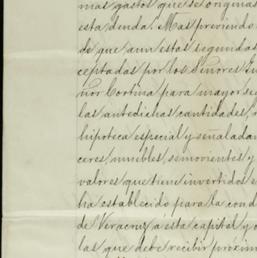 mas gastos que se originas
esta deuda. Mas previendo
de que aun estas segundas
ceptadas por los Señores
ñor Cortina para mayor se
las antedichas cantidades,
hipoteca especial y señalada
ceres, muebles, semovientes y
valores que tiene invertidos e
ha establecido para la cond
de Veracruz á esta capital y
las que debe recibir próxim